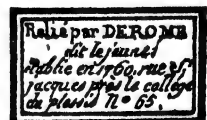 Relié par DEROME
dit le jeune
Etablie en 1760. rue St
jacques près le collège
du plessis N° 65.